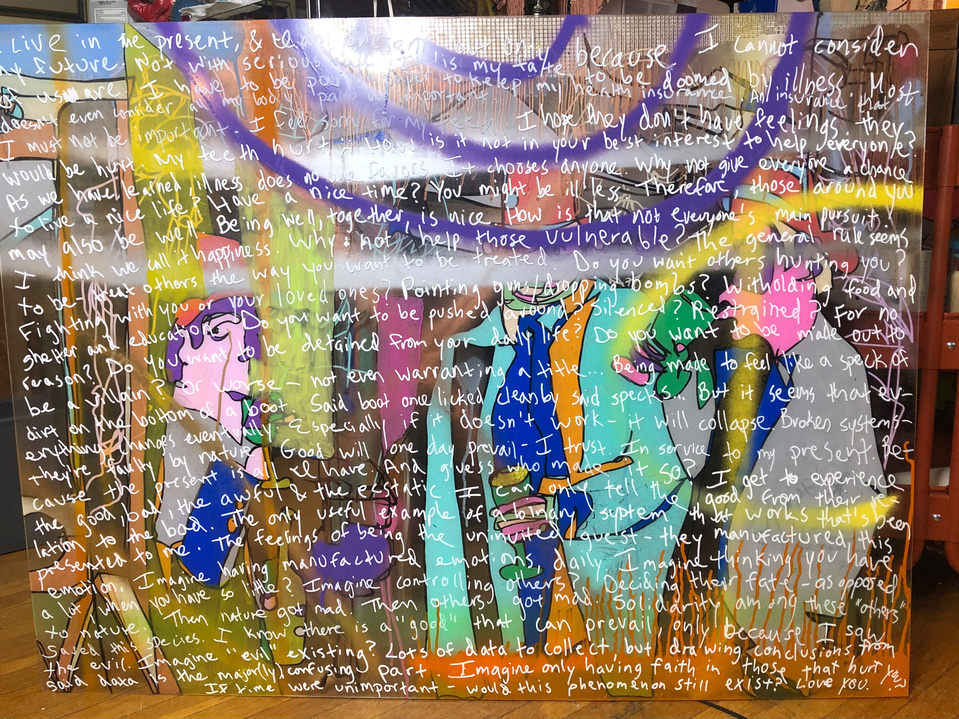 I Live in the present, & only because I cannot consider
my future. Not with serious is my taste to be doomed by illness. Most
as usual are. I have to be poor paper to keep my health insurance. An insurance that
doesn't even consider all my body parts important. I feel sorry for my I hope they don't have feelings, they
I must not be important.
would be hurt. My teeth hurt. How is it not in your best interest to help everyone?
As we have learned, illness does not It chooses anyone. Why not give everyone a chance
to live a nice life? Have a nice time? You might be ill less. Therefore, those around you
may also be well. Being well, together, is nice. How is that not everyone's main pursuit!
I think we call it happiness. Why not help those vulnerable? The general rule seems
to be- treat others the way you want to be treated. Do you want others hunting you?
Fighting with you or your loved ones? Pointing guns/dropping bombs? Witholding food and
shelter and education? Do you want to be pushed around? Silenced? Restrained? For no
reason? Do you want to be detained from your daily life? Do you want to be made out to
be a villain? Or worse- not even warranting a title... Being made to feel like a speck of
dirt on the bottom of a boot. Said boot once licked clean by said specks... But it seems that ev-
erything changes eventually- Especially if it doesn't work- it will collapse. Broken systems-
they're faulty by nature. Good will one day prevail- I trust. In service to my present be-
cause the present is all I have. And guess who made it so? I get to experience
the good, bad, the awful & the esstatic. I can only tell the "good" from their re-
lation to the bad. The only useful example of a binary system that works that's been
presented to me. The feelings of being the uninvited guest- they manufactured this
emotion. Imagine having manufactured emotions daily. Imagine thinking you have
a lot when you have so little? Imagine controlling others? Deciding their fate- as opposed
to nature. Then nature got mad. Then others got mad. Solidarity among these "others"
saved this species. I know there is a "good" that can prevail, only because I saw
the evil. Imagine "evil" existing? Lots of data to collect, but drawing conclusions from
said data is the majorly confusing part. Imagine only having faith in those that hurt you?
If time were unimportant- would this phenomenon still exist? Love you.